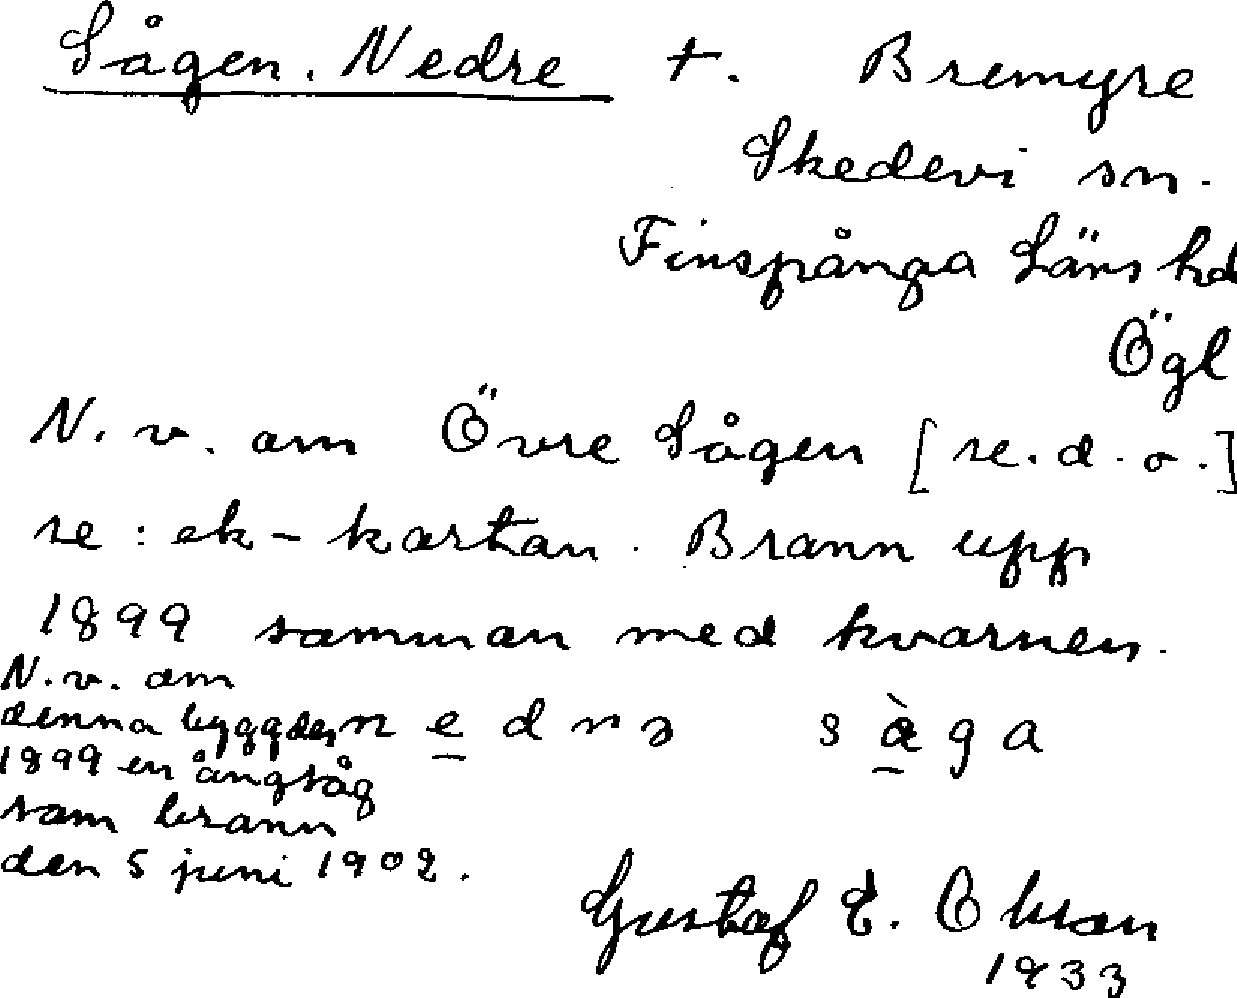 Sågen. Nedre t. Bremyre
Skedevi sn.
Finspånga Läns hd
Ögl
N. v. om Övre Sågen [se. d. o.]
se: ek-kartan. Brann upp
1899 samman med kvarnen.
n e d n ə s à g a
N. v. om
denna byggdes
1899 en ångsåg
som brann
den 5 juni 1902.
Gustaf E.
1933